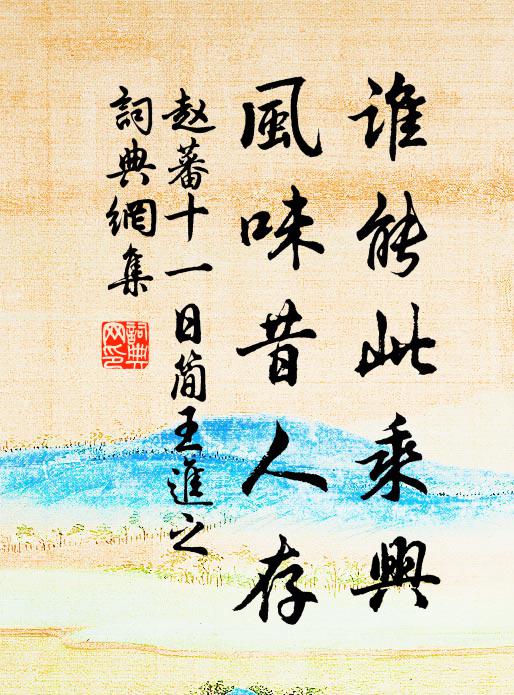 誰能此乘興
風味昔人存
赵蕃十一日简王進之
詞典網集
詞典网印